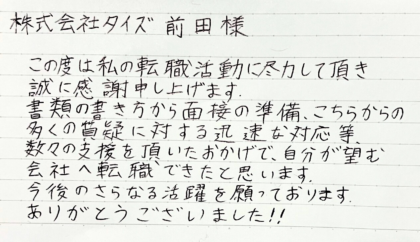 株式会社タイズ 前田様
この度は私の転職活動に尽力して頂き
誠に感謝申し上げます.
書類の書き方から面接の準備、こちらからの
多くの質疑に対する迅速な対応等、
数々の支援を頂いたおかげで、自分が望む
会社へ転職できたと思います.
今後のさらなる活躍を願っております.
ありがとうございました!!